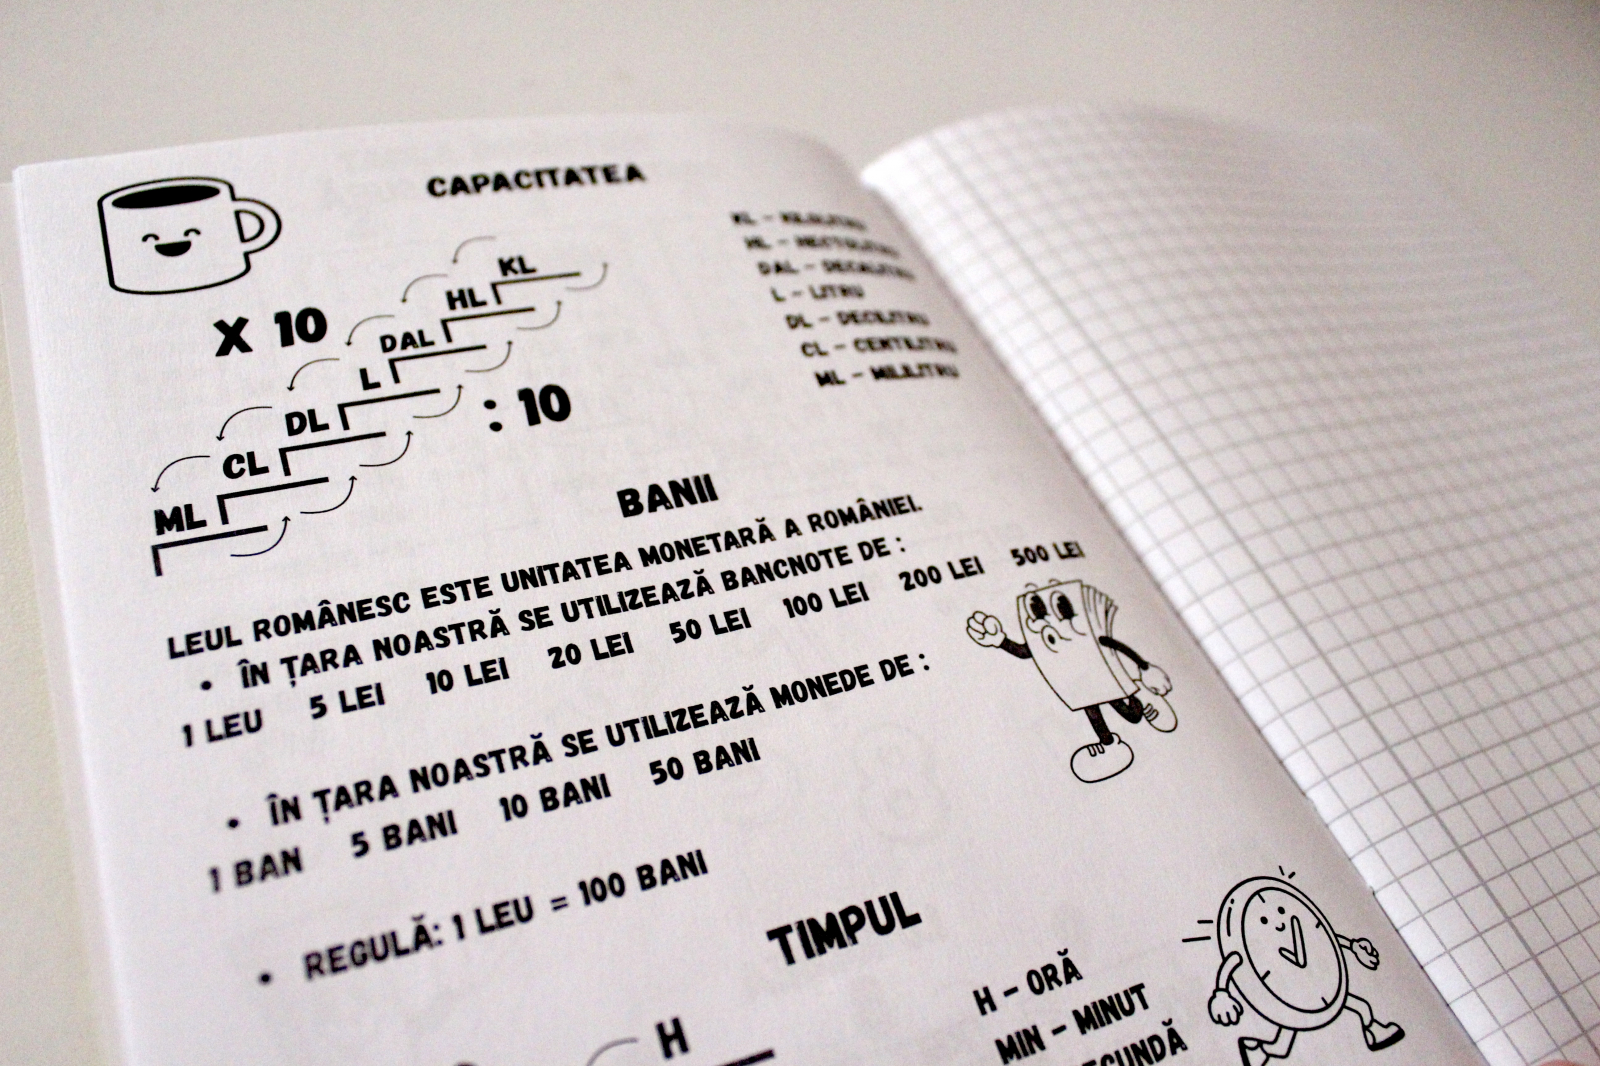 CAPACITATEA
KL
HL
DAL
L
DL
CL
ML
X 10
: 10
KL - KILOLITRU
HL - HECTOLITRU
DAL - DECALITRU
L - LITRU
DL - DECILITRU
CL - CENTILITRU
ML - MILILITRU
BANII
LEUL ROMÂNESC ESTE UNITATEA MONETARĂ A ROMÂNIEI.
• ÎN ȚARA NOASTRĂ SE UTILIZEAZĂ BANCNOTE DE :
1 LEU 5 LEI 10 LEI 20 LEI 50 LEI 100 LEI 200 LEI 500 LEI
• ÎN ȚARA NOASTRĂ SE UTILIZEAZĂ MONEDE DE :
1 BAN 5 BANI 10 BANI 50 BANI
• REGULĂ: 1 LEU = 100 BANI
TIMPUL
H
H - ORĂ
MIN - MINUT